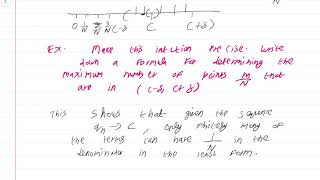 0 1/N 2/N 3/N (-δ C C+δ)
Ex. Make this intution precise. Write
down a formula for determining the
maximum number of points m/N that
are in (c-δ, c+δ)
This shows that given the sequence
qn → C, only finitely many of
the terms can have 1/N in the
denominator in the lowest form.